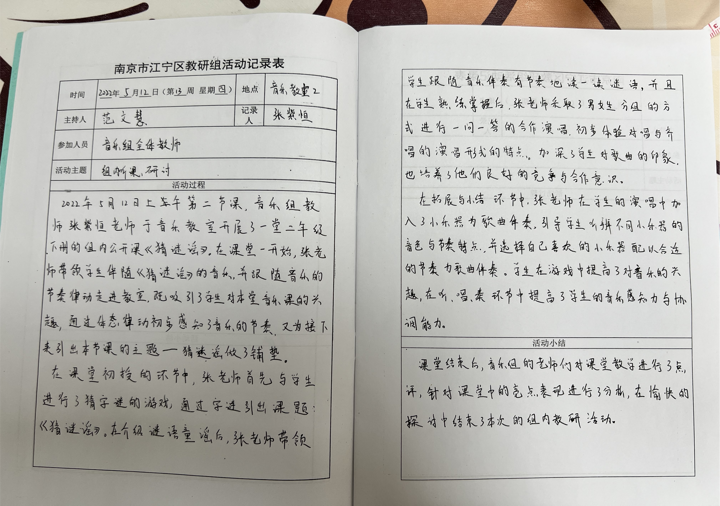 南京市江宁区教研组活动记录表
时间 2022年5月12日(第13周 星期四) 地点 音乐教室2
主持人 范文慧 记录人 张紫恒
参加人员 音乐组全体教师
活动主题 组内听课、研讨
活动过程
2022年5月12日上午第二节课,音乐组教
师张紫恒老师于音乐教室开展了一堂二年级
下册的组内公开课《猜谜谣》。在课堂一开始,张老
师带领学生伴随《猜谜谣》的音乐,并跟随音乐的
节奏律动走进教室,既吸引了学生对本堂音乐课的兴
趣,通过体态律动初步感知了音乐的节奏,又为接下
来引出本节课的主题——猜谜谣做了铺垫。
在课堂初授的环节中,张老师首先与学生
进行了猜字谜的游戏,通过字谜引出课题:
《猜谜谣》。在介绍谜语童谣后,张老师带领
学生跟随音乐伴奏有节奏地读一读谜语,并且
在学生熟练掌握后,张老师采取了男女生分组的方
式进行一问一答的合作演唱,初步体验对唱与齐
唱的演唱形式的特点。加深了学生对歌曲的印象,
也培养了他们良好的竞争与合作意识。
在拓展与小结环节中,张老师在学生的演唱中加
入了小乐器为歌曲伴奏,引导学生听辨不同小乐器的
音色与节奏特点,并选择自己喜欢的小乐器配以合适
的节奏为歌曲伴奏。学生在游戏中提高了对音乐的兴
趣,在听、唱、奏环节中提高了学生的音乐感知力与协
调能力。
活动小结
课堂结束后,音乐组的老师们对课堂教学进行了点
评,针对课堂中的亮点表现进行了分析,在愉快的
探讨中结束了本次的组内教研活动。